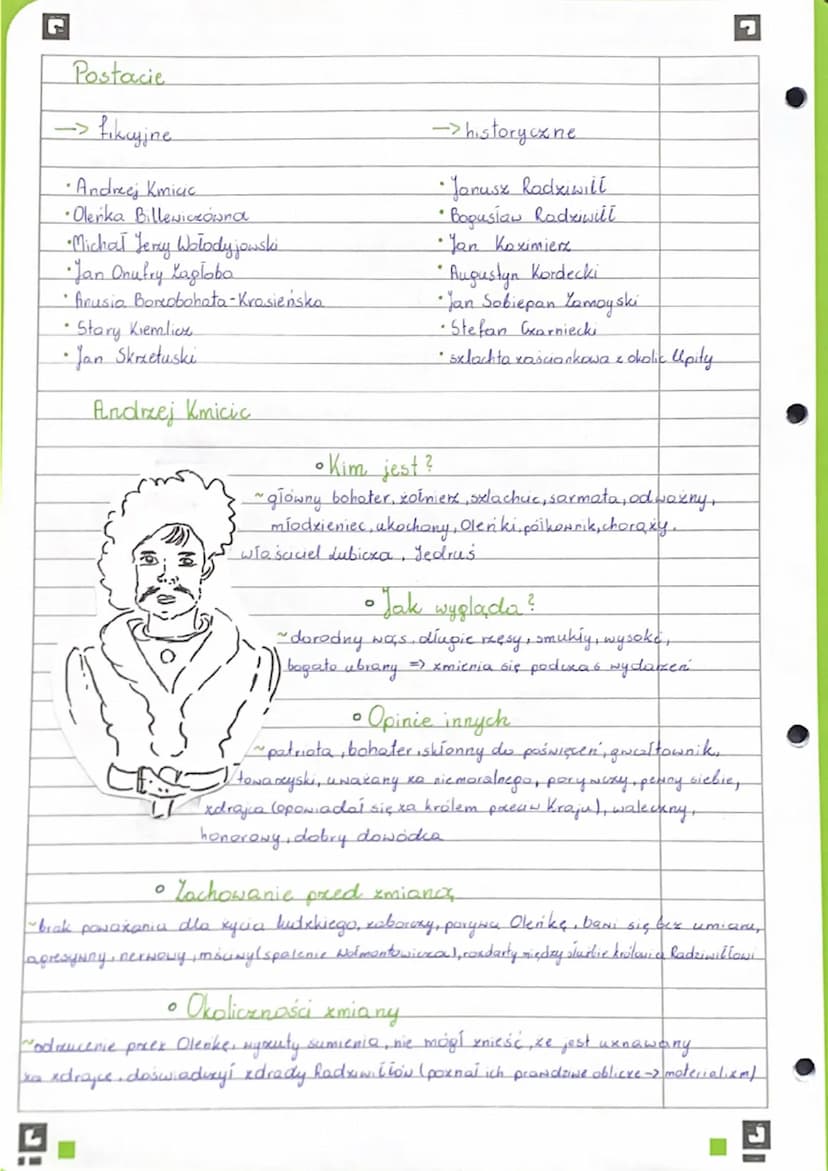 Postacie
→ fikcyjne
→ historyczne
• Andrzej Kmicic
• Oleńka Billewiczówna
• Michał Jerzy Wołodyjowski
• Jan Onufry Zagłoba
• Anusia Borzobohata-Krasieńska
• Stary Kiemlicz
• Jan Skrzetuski
• Janusz Radziwiłł
• Bogusław Radziwiłł
• Jan Kazimierz
• Augustyn Kordecki
• Jan Sobiepan Zamoyski
• Stefan Czarniecki
• szlachta zaściankowa z okolic Upity
Andrzej Kmicic
• Kim jest?
~ główny bohater, żołnierz, szlachcic, sarmata, odważny,
młodzieniec, ukochany, Oleńki, pólkownik, chorąży,
właściciel Lubicza, Jędruś
• Jak wygląda?
~ dorodny wąs, długie rzęsy, smukły, wysoki,
bogato ubrany => zmienia się podczas wydarzeń
• Opinie innych
~ patriota, bohater, skłonny do poświęceń, gwałtownik,
towarzyski, uważany za niemoralnego, porywczy, pewny siebie,
zdrajca (opowiadał się za królem przeciw Kraju), waleczny,
honorowy, dobry dowódca
• Zachowanie przed zmianą
~ brak poważania dla życia ludzkiego, zaborczy, porywa Oleńkę, bawi się bez umiaru,
agresywny, nerwowy, mściwy (spalenie Wołmontowicza), rozdarty między służbie królowi a Radziwiłłowi
• Okoliczności zmiany
~ odrzucenie przez Oleńkę, wyrzuty sumienia, nie mógł znieść, że jest uznawany
za zdrajcę, doświadczył zdrady Radziwiłłów (poznał ich prawdziwe oblicze -> materializm)